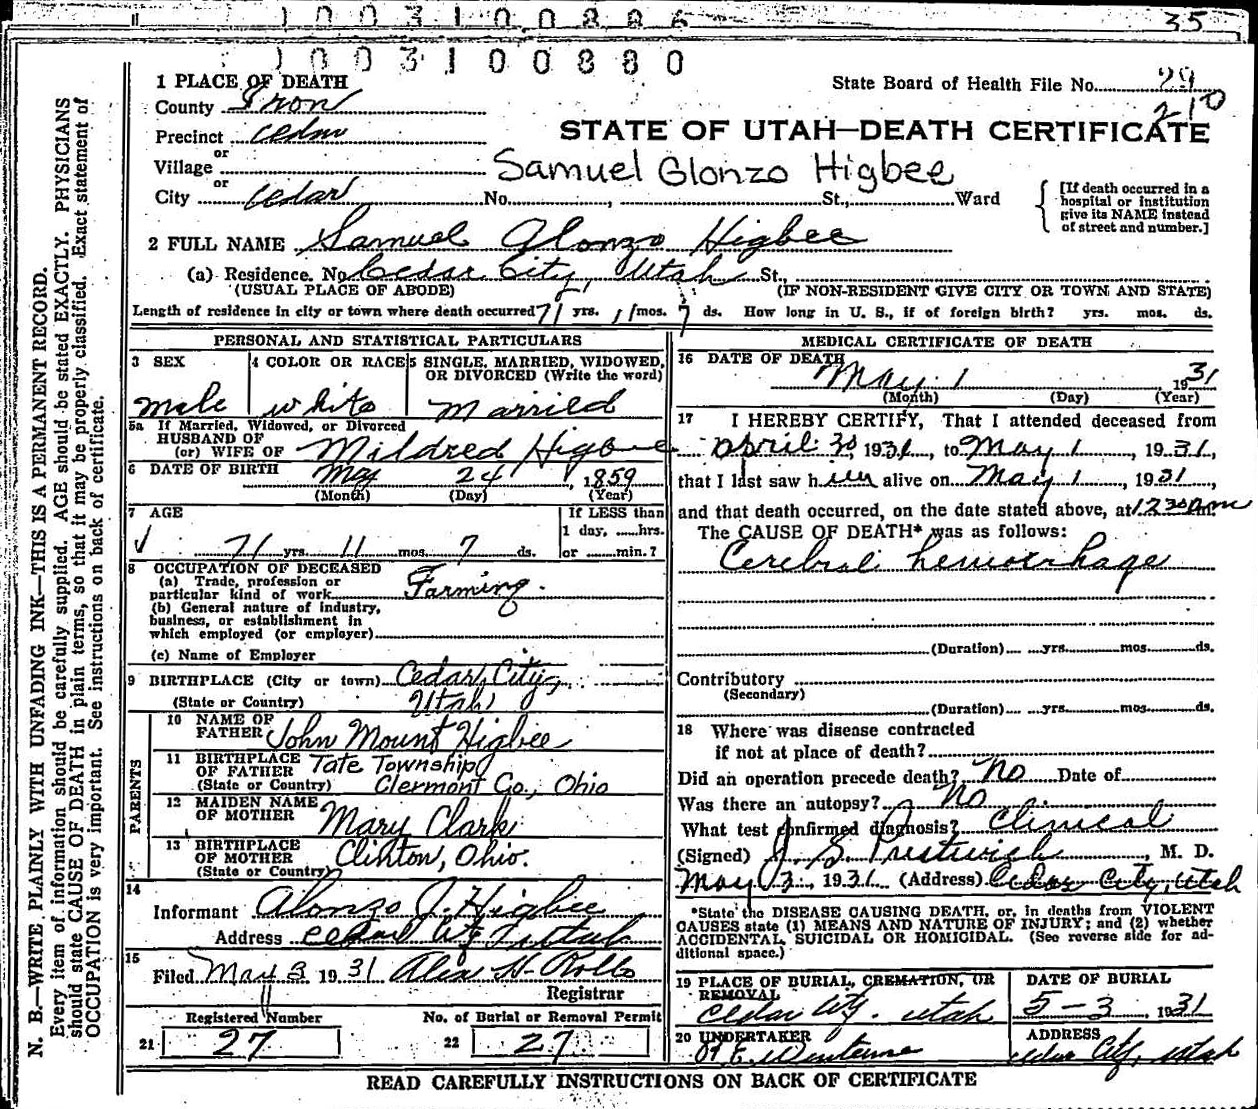 1003100886
35
1003100880
1 PLACE OF DEATH
State Board of Health File No. 29
210
County Iron
Precinct Cedar
STATE OF UTAH—DEATH CERTIFICATE
or
Village
Samuel Glonzo Higbee
or
City Cedar No. , St., Ward
[If death occurred in a hospital or institution give its NAME instead of street and number.]
2 FULL NAME Samuel Alonzo Higbee
(a) Residence. No. Cedar City, Utah St.,
(USUAL PLACE OF ABODE) (IF NON-RESIDENT GIVE CITY OR TOWN AND STATE)
Length of residence in city or town where death occurred 71 yrs. 11 mos. 7 ds. How long in U. S., if of foreign birth? yrs. mos. ds.
PERSONAL AND STATISTICAL PARTICULARS
3 SEX 4 COLOR OR RACE 5 SINGLE, MARRIED, WIDOWED,
OR DIVORCED (Write the word)
Male white Married
5a If Married, Widowed, or Divorced
HUSBAND OF
(or) WIFE OF Mildred Higbee
6 DATE OF BIRTH May 24, 1859
(Month) (Day) (Year)
7 AGE If LESS than
1 day, hrs.
71 yrs. 11 mos. 7 ds. or min.?
8 OCCUPATION OF DECEASED
(a) Trade, profession or
particular kind of work Farming.
(b) General nature of industry,
business, or establishment in
which employed (or employer)
(c) Name of Employer
9 BIRTHPLACE (City or town) Cedar City,
(State or Country) Utah
PARENTS
10 NAME OF
FATHER John Mount Higbee
11 BIRTHPLACE
OF FATHER Tate Township
(State or Country) Clermont Co., Ohio
12 MAIDEN NAME
OF MOTHER Mary Clark
13 BIRTHPLACE
OF MOTHER Clinton, Ohio.
(State or Country)
14
Informant Alonzo J. Higbee
Address Cedar City Utah
15
Filed May 3 1931 Alex H. Rollo
Registrar
Registered Number No. of Burial or Removal Permit
21 27 22 27
MEDICAL CERTIFICATE OF DEATH
16 DATE OF DEATH
May 1 1931
(Month) (Day) (Year)
17 I HEREBY CERTIFY, That I attended deceased from
April 30, 1931, to May 1, 1931,
that I last saw him alive on May 1, 1931,
and that death occurred, on the date stated above, at 12 30 m.
The CAUSE OF DEATH* was as follows:
Cerebral hemorrhage
(Duration) yrs. mos. ds.
Contributory
(Secondary)
(Duration) yrs. mos. ds.
18 Where was disease contracted
if not at place of death?
Did an operation precede death? No Date of
Was there an autopsy? No
What test confirmed diagnosis? Clinical
(Signed) J. S. Prestwich, M. D.
May 3, 1931 (Address) Cedar City, Utah
*State the DISEASE CAUSING DEATH, or, in deaths from VIOLENT
CAUSES state (1) MEANS AND NATURE OF INJURY; and (2) whether
ACCIDENTAL, SUICIDAL OR HOMICIDAL. (See reverse side for ad-
ditional space.)
19 PLACE OF BURIAL, CREMATION, OR DATE OF BURIAL
REMOVAL
Cedar City, Utah 5-3, 1931
20 UNDERTAKER ADDRESS
Cedar City, Utah
READ CAREFULLY INSTRUCTIONS ON BACK OF CERTIFICATE
N. B.—WRITE PLAINLY WITH UNFADING INK—THIS IS A PERMANENT RECORD.
Every item of information should be carefully supplied. AGE should be stated EXACTLY. PHYSICIANS
should state CAUSE OF DEATH in plain terms, so that it may be properly classified. Exact statement of
OCCUPATION is very important. See instructions on back of certificate.